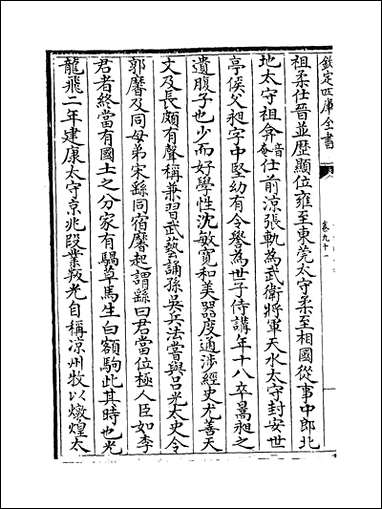 欽定四庫全書
卷九十一
祖柔仕晉並歷顯位雍至東莞太守柔至相國從事中郎北
地太守祖弇音奄仕前涼張軌為武衛將軍天水太守封安世
亭侯父昶字中堅幼有令譽為世子侍講年十八卒暠昶之
遺腹子也少而好學性沈敏寬和美器度通涉經史尤善天
文及長頗有聲稱兼習武藝誦孫吳兵法嘗與吕光太史令
郭黁及同母弟宋繇同宿黁起謂繇曰君當位極人臣如李
君者終當有國土之分家有騧草馬生白額駒此其時也光
龍飛二年建康太守京兆段業叛光自稱涼州牧以燉煌太